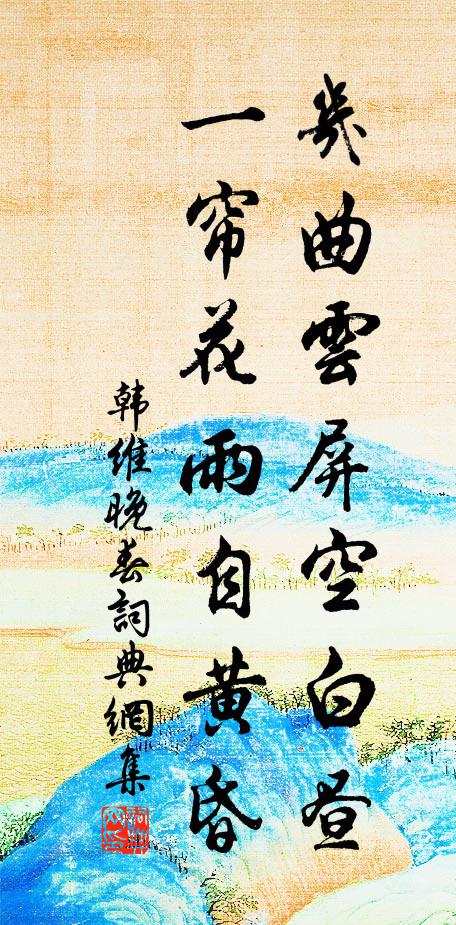 幾曲雲屏空白昼
一帘花雨自黄昏
韩維晚春詞典網集